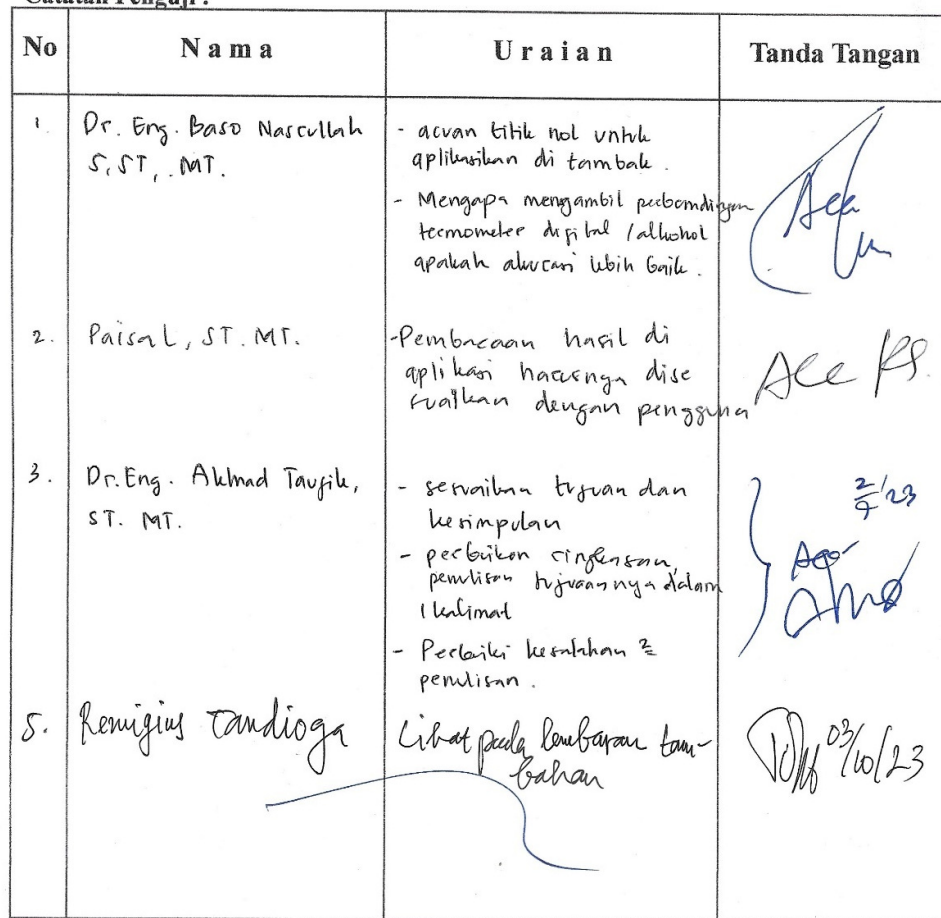 Catatan Penguji :
No Nama Uraian Tanda Tangan
1. Dr. Eng. Baso Nasrullah
S,ST,. MT.
- acuan titik nol untuk
aplikasikan di tambak.
- Mengapa mengambil perbandingan
termometer digital / alkohol
apakah akurasi lebih baik.
Acc
2. Paisal, ST. MT.
- Pembacaan hasil di
aplikasi harusnya dise
suaikan dengan pengguna
Acc
3. Dr. Eng. Akhmad Taufik,
ST. MT.
- sesuaikan tujuan dan
kesimpulan
- perbaikan ringkasan,
penulisan tujuannya dalam
1 kalimat
- Perbaiki kesalahan 2
penulisan.
Acc
5. Remigius Tandioga
Lihat pada lembaran tam-
bahan
03/10/23